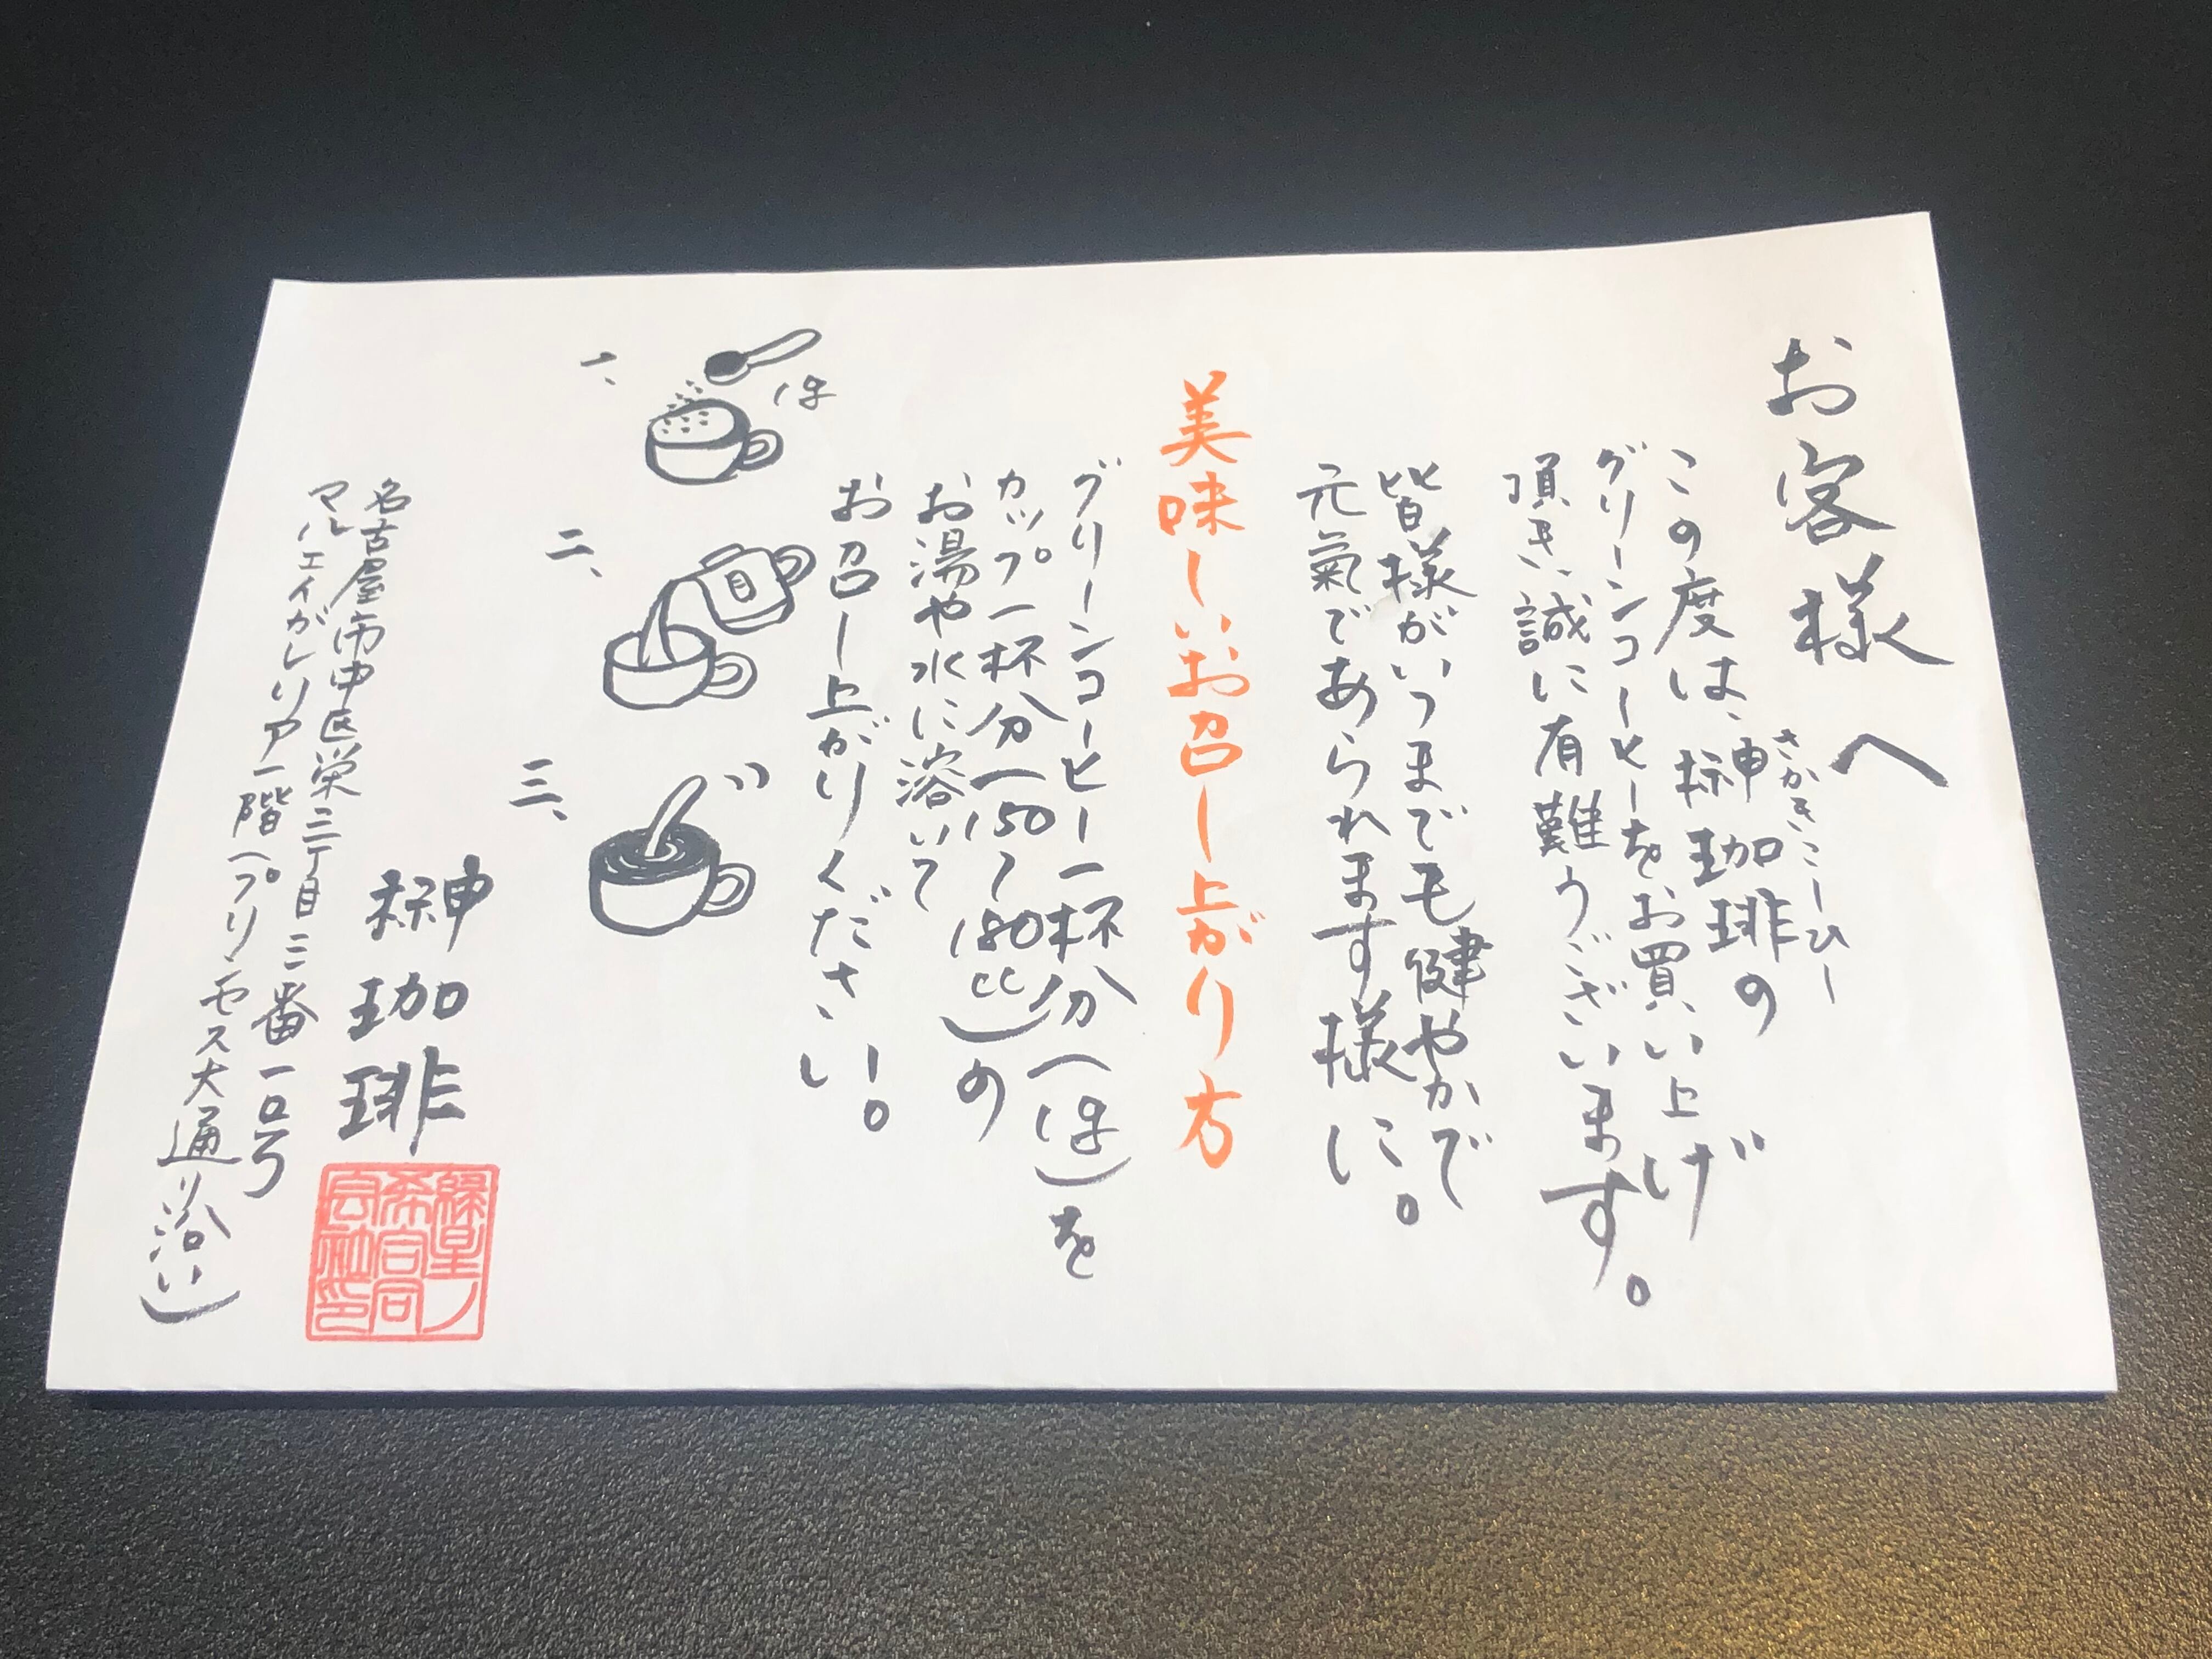 お客様へ
この度は、榊珈琲の
さかきこーひー
グリーンコーヒーをお買い上げ
頂き、誠に有難うございます。
皆様がいつまでも健やかで
元氣であられます様に。
美味しいお召し上がり方
グリーンコーヒー一杯分(1g)を
カップ一杯分(150〜180cc)の
お湯や水に溶いて
お召し上がりください。
一、
1g
二、
三、
榊珈琲
名古屋市中区栄三丁目三番一号
マルエイがレリア一階(プリンセス大通り沿い)